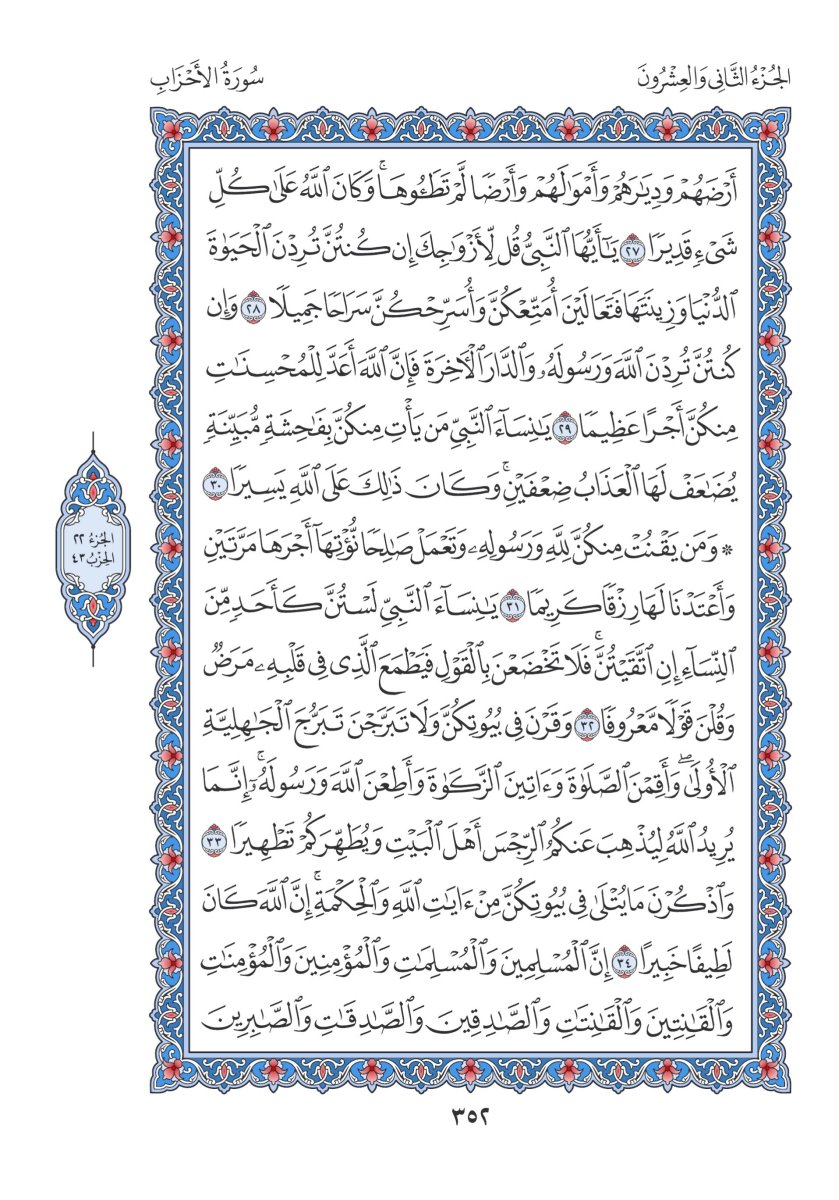 الجُزْءُ الثَّانِي وَالعِشْرُونَ
سُورَةُ الأَحْزَابِ
أَرْضَهُمْ وَدِيَٰرَهُمْ وَأَمْوَٰلَهُمْ وَأَرْضًا لَّمْ تَطَـُٔوهَا ۚ وَكَانَ ٱللَّهُ عَلَىٰ كُلِّ
شَىْءٍ قَدِيرًا ٢٧ يَٰٓأَيُّهَا ٱلنَّبِىُّ قُل لِّأَزْوَٰجِكَ إِن كُنتُنَّ تُرِدْنَ ٱلْحَيَوٰةَ
ٱلدُّنْيَا وَزِينَتَهَا فَتَعَالَيْنَ أُمَتِّعْكُنَّ وَأُسَرِّحْكُنَّ سَرَاحًا جَمِيلًا ٢٨ وَإِن
كُنتُنَّ تُرِدْنَ ٱللَّهَ وَرَسُولَهُۥ وَٱلدَّارَ ٱلْءَاخِرَةَ فَإِنَّ ٱللَّهَ أَعَدَّ لِلْمُحْسِنَٰتِ
مِنكُنَّ أَجْرًا عَظِيمًا ٢٩ يَٰنِسَآءَ ٱلنَّبِىِّ مَن يَأْتِ مِنكُنَّ بِفَٰحِشَةٍ مُّبَيِّنَةٍ
يُضَٰعَفْ لَهَا ٱلْعَذَابُ ضِعْفَيْنِ ۚ وَكَانَ ذَٰلِكَ عَلَى ٱللَّهِ يَسِيرًا ٣٠
* وَمَن يَقْنُتْ مِنكُنَّ لِلَّهِ وَرَسُولِهِۦ وَتَعْمَلْ صَٰلِحًا نُّؤْتِهَآ أَجْرَهَا مَرَّتَيْنِ
وَأَعْتَدْنَا لَهَا رِزْقًا كَرِيمًا ٣١ يَٰنِسَآءَ ٱلنَّبِىِّ لَسْتُنَّ كَأَحَدٍ مِّنَ
ٱلنِّسَآءِ إِنِ ٱتَّقَيْتُنَّ ۚ فَلَا تَخْضَعْنَ بِٱلْقَوْلِ فَيَطْمَعَ ٱلَّذِى فِى قَلْبِهِۦ مَرَضٌ
وَقُلْنَ قَوْلًا مَّعْرُوفًا ٣٢ وَقَرْنَ فِى بُيُوتِكُنَّ وَلَا تَبَرَّجْنَ تَبَرُّجَ ٱلْجَٰهِلِيَّةِ
ٱلْأُولَىٰ ۖ وَأَقِمْنَ ٱلصَّلَوٰةَ وَءَاتِينَ ٱلزَّكَوٰةَ وَأَطِعْنَ ٱللَّهَ وَرَسُولَهُۥٓ ۚ إِنَّمَا
يُرِيدُ ٱللَّهُ لِيُذْهِبَ عَنكُمُ ٱلرِّجْسَ أَهْلَ ٱلْبَيْتِ وَيُطَهِّرَكُمْ تَطْهِيرًا ٣٣
وَٱذْكُرْنَ مَا يُتْلَىٰ فِى بُيُوتِكُنَّ مِنْ ءَايَٰتِ ٱللَّهِ وَٱلْحِكْمَةِ ۚ إِنَّ ٱللَّهَ كَانَ
لَطِيفًا خَبِيرًا ٣٤ إِنَّ ٱلْمُسْلِمِينَ وَٱلْمُسْلِمَٰتِ وَٱلْمُؤْمِنِينَ وَٱلْمُؤْمِنَٰتِ
وَٱلْقَٰنِتِينَ وَٱلْقَٰنِتَٰتِ وَٱلصَّٰدِقِينَ وَٱلصَّٰدِقَٰتِ وَٱلصَّٰبِرِينَ
الجُزْءُ ٢٢
الحِزْبُ ٤٣
٣٥٢